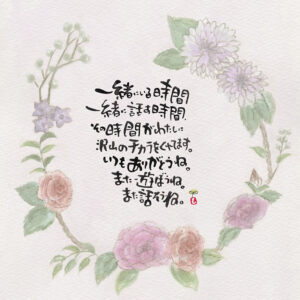 一緒にいる時間
一緒に話す時間
その時間がわたしに
沢山のチカラをくれてます。
いつもありがとうね。
また遊ぼうね。
また話そうね。